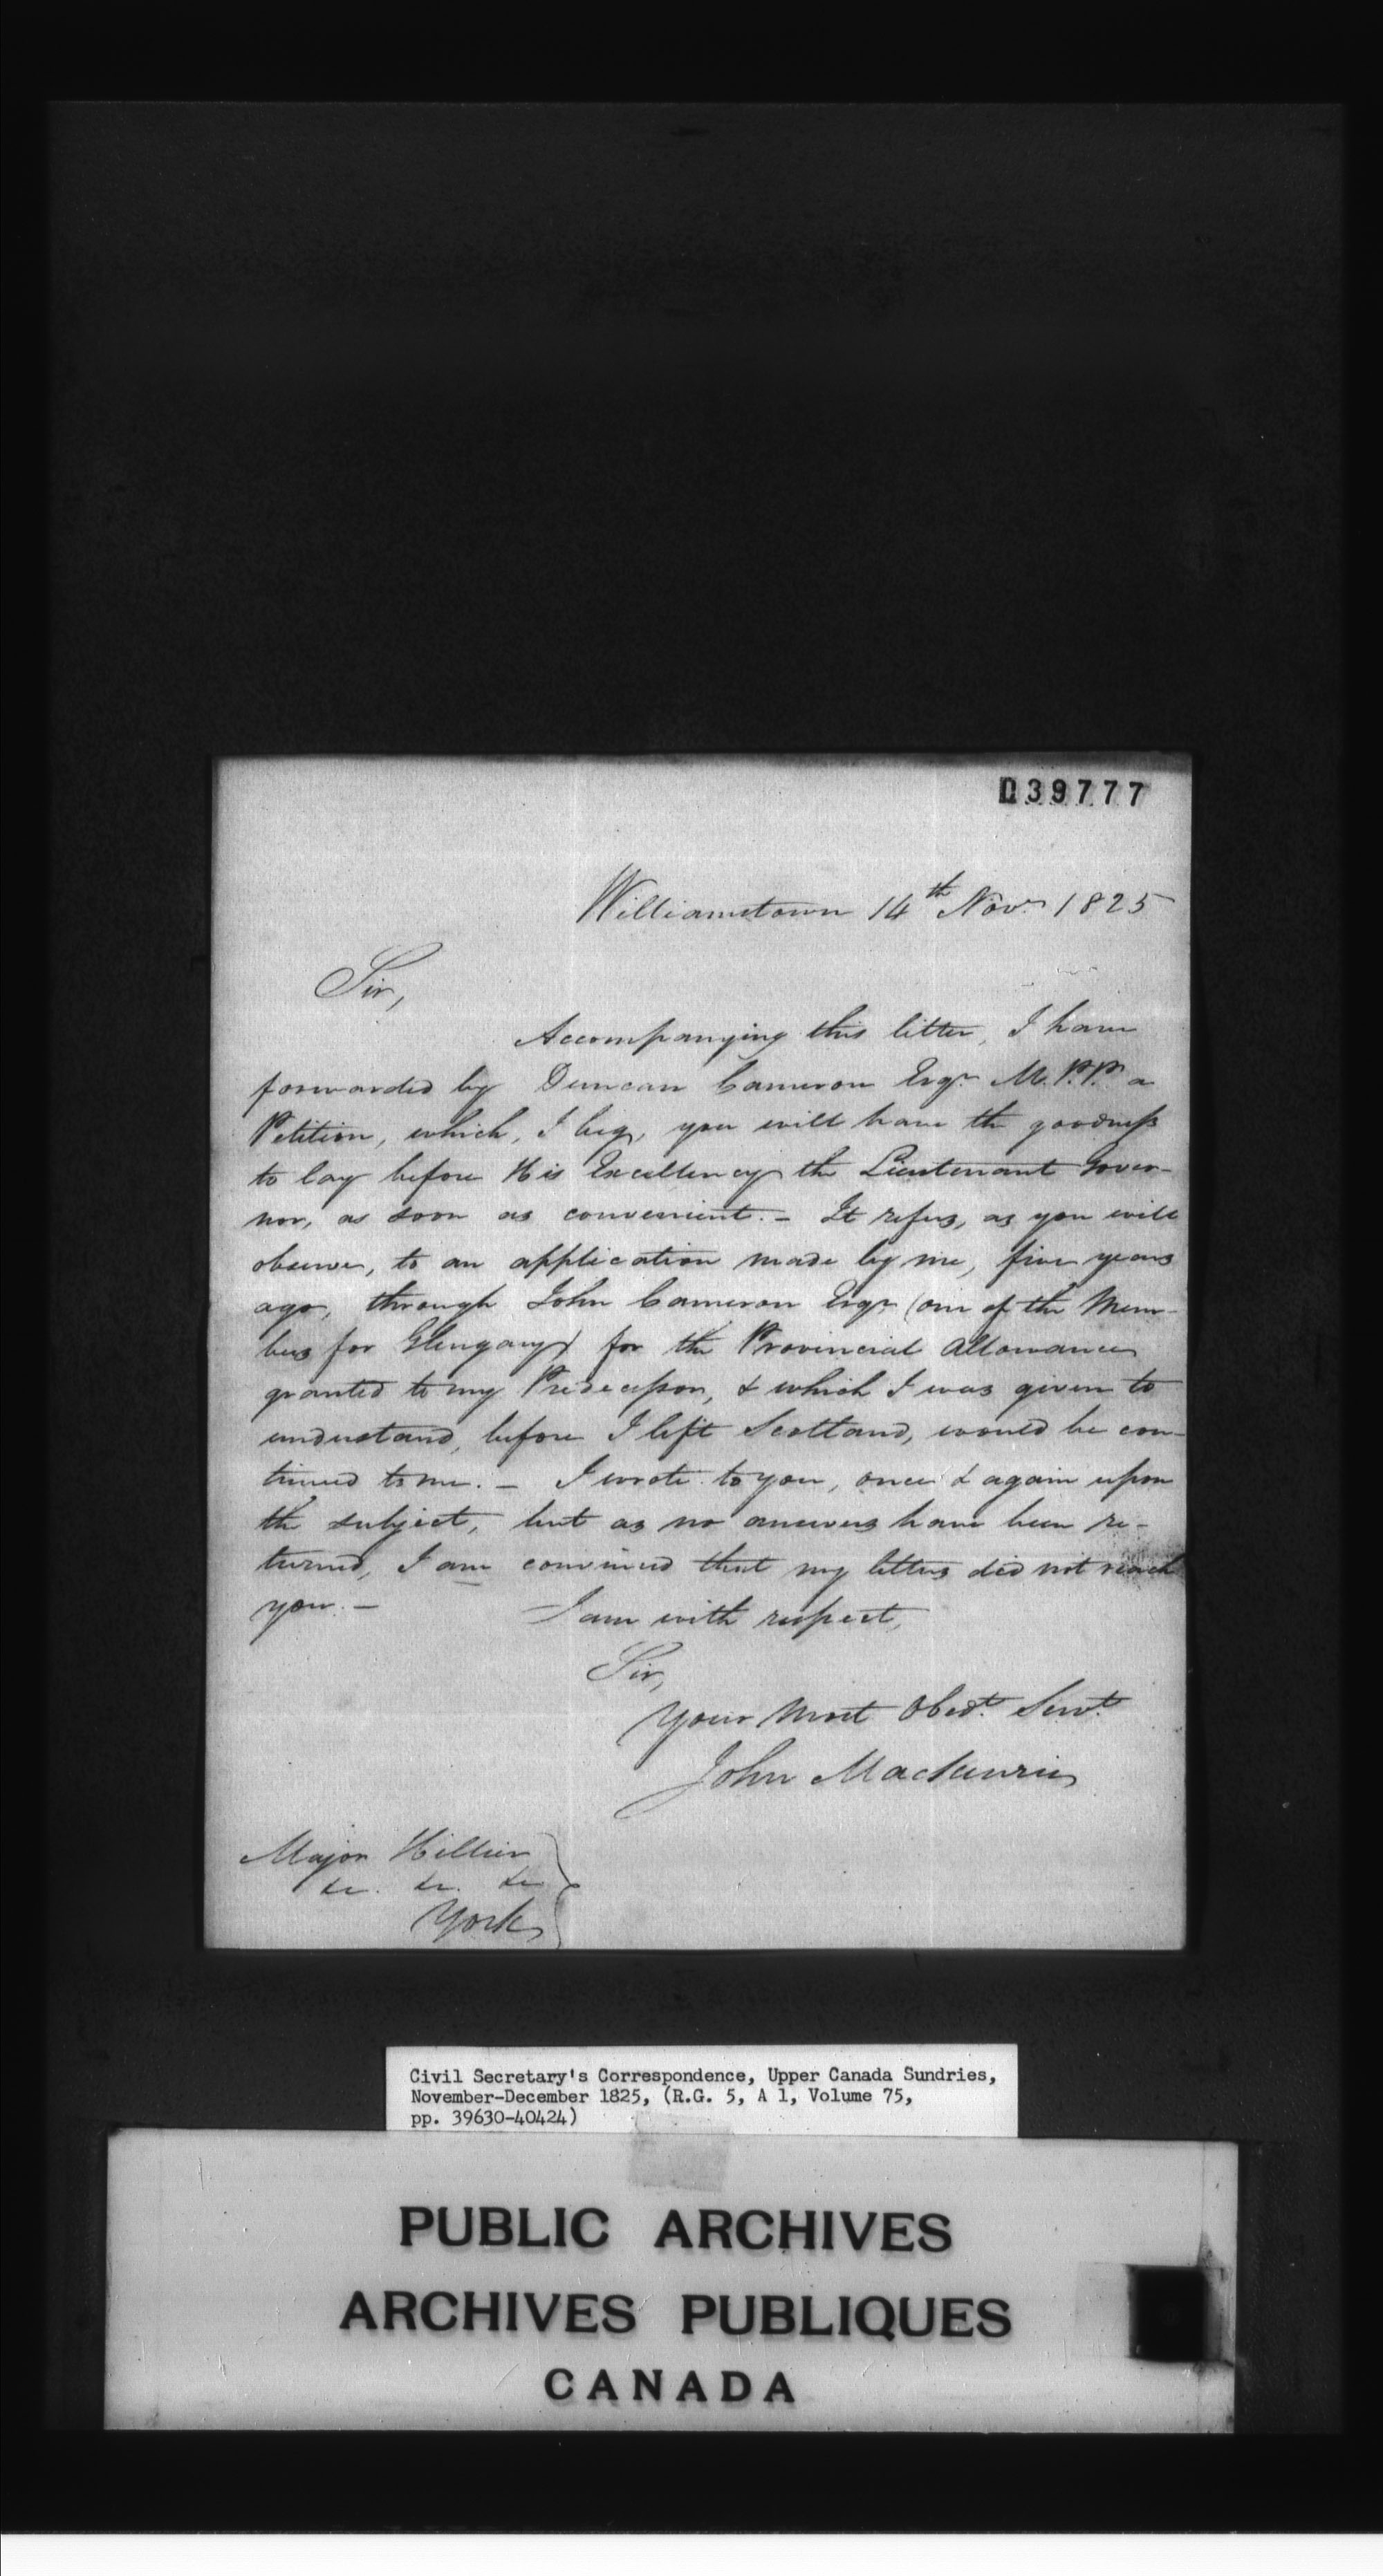 039777
Williamstown 14th Novr 1825
Sir,
Accompanying this letter, I have
forwarded by Duncan Cameron Esqr. M.P.P. a
Petition, which, I beg, you will have the goodness
to lay before His Excellency the Lieutenant Gover-
nor, as soon as convenient. - It refers, as you will
observe, to an application made by me, five years
ago, through John Cameron Esqr. (one of the Mem-
bers for Glengary) for the Provincial Allowance
granted to my Predecessor, & which I was given to
understand, before I left Scotland, would be con-
tinued to me. - I wrote to you, once & again upon
the subject, but as no answers have been re-
turned, I am convinced that my letters did not reach
you. - I am with respect,
Sir,
Your Most Obedt. Servt.
John Mackenzie
Major Hillier
&c. &c. &c
York
Civil Secretary's Correspondence, Upper Canada Sundries,
November-December 1825, (R.G. 5, A 1, Volume 75,
pp. 39630-40424)
PUBLIC ARCHIVES
ARCHIVES PUBLIQUES
CANADA